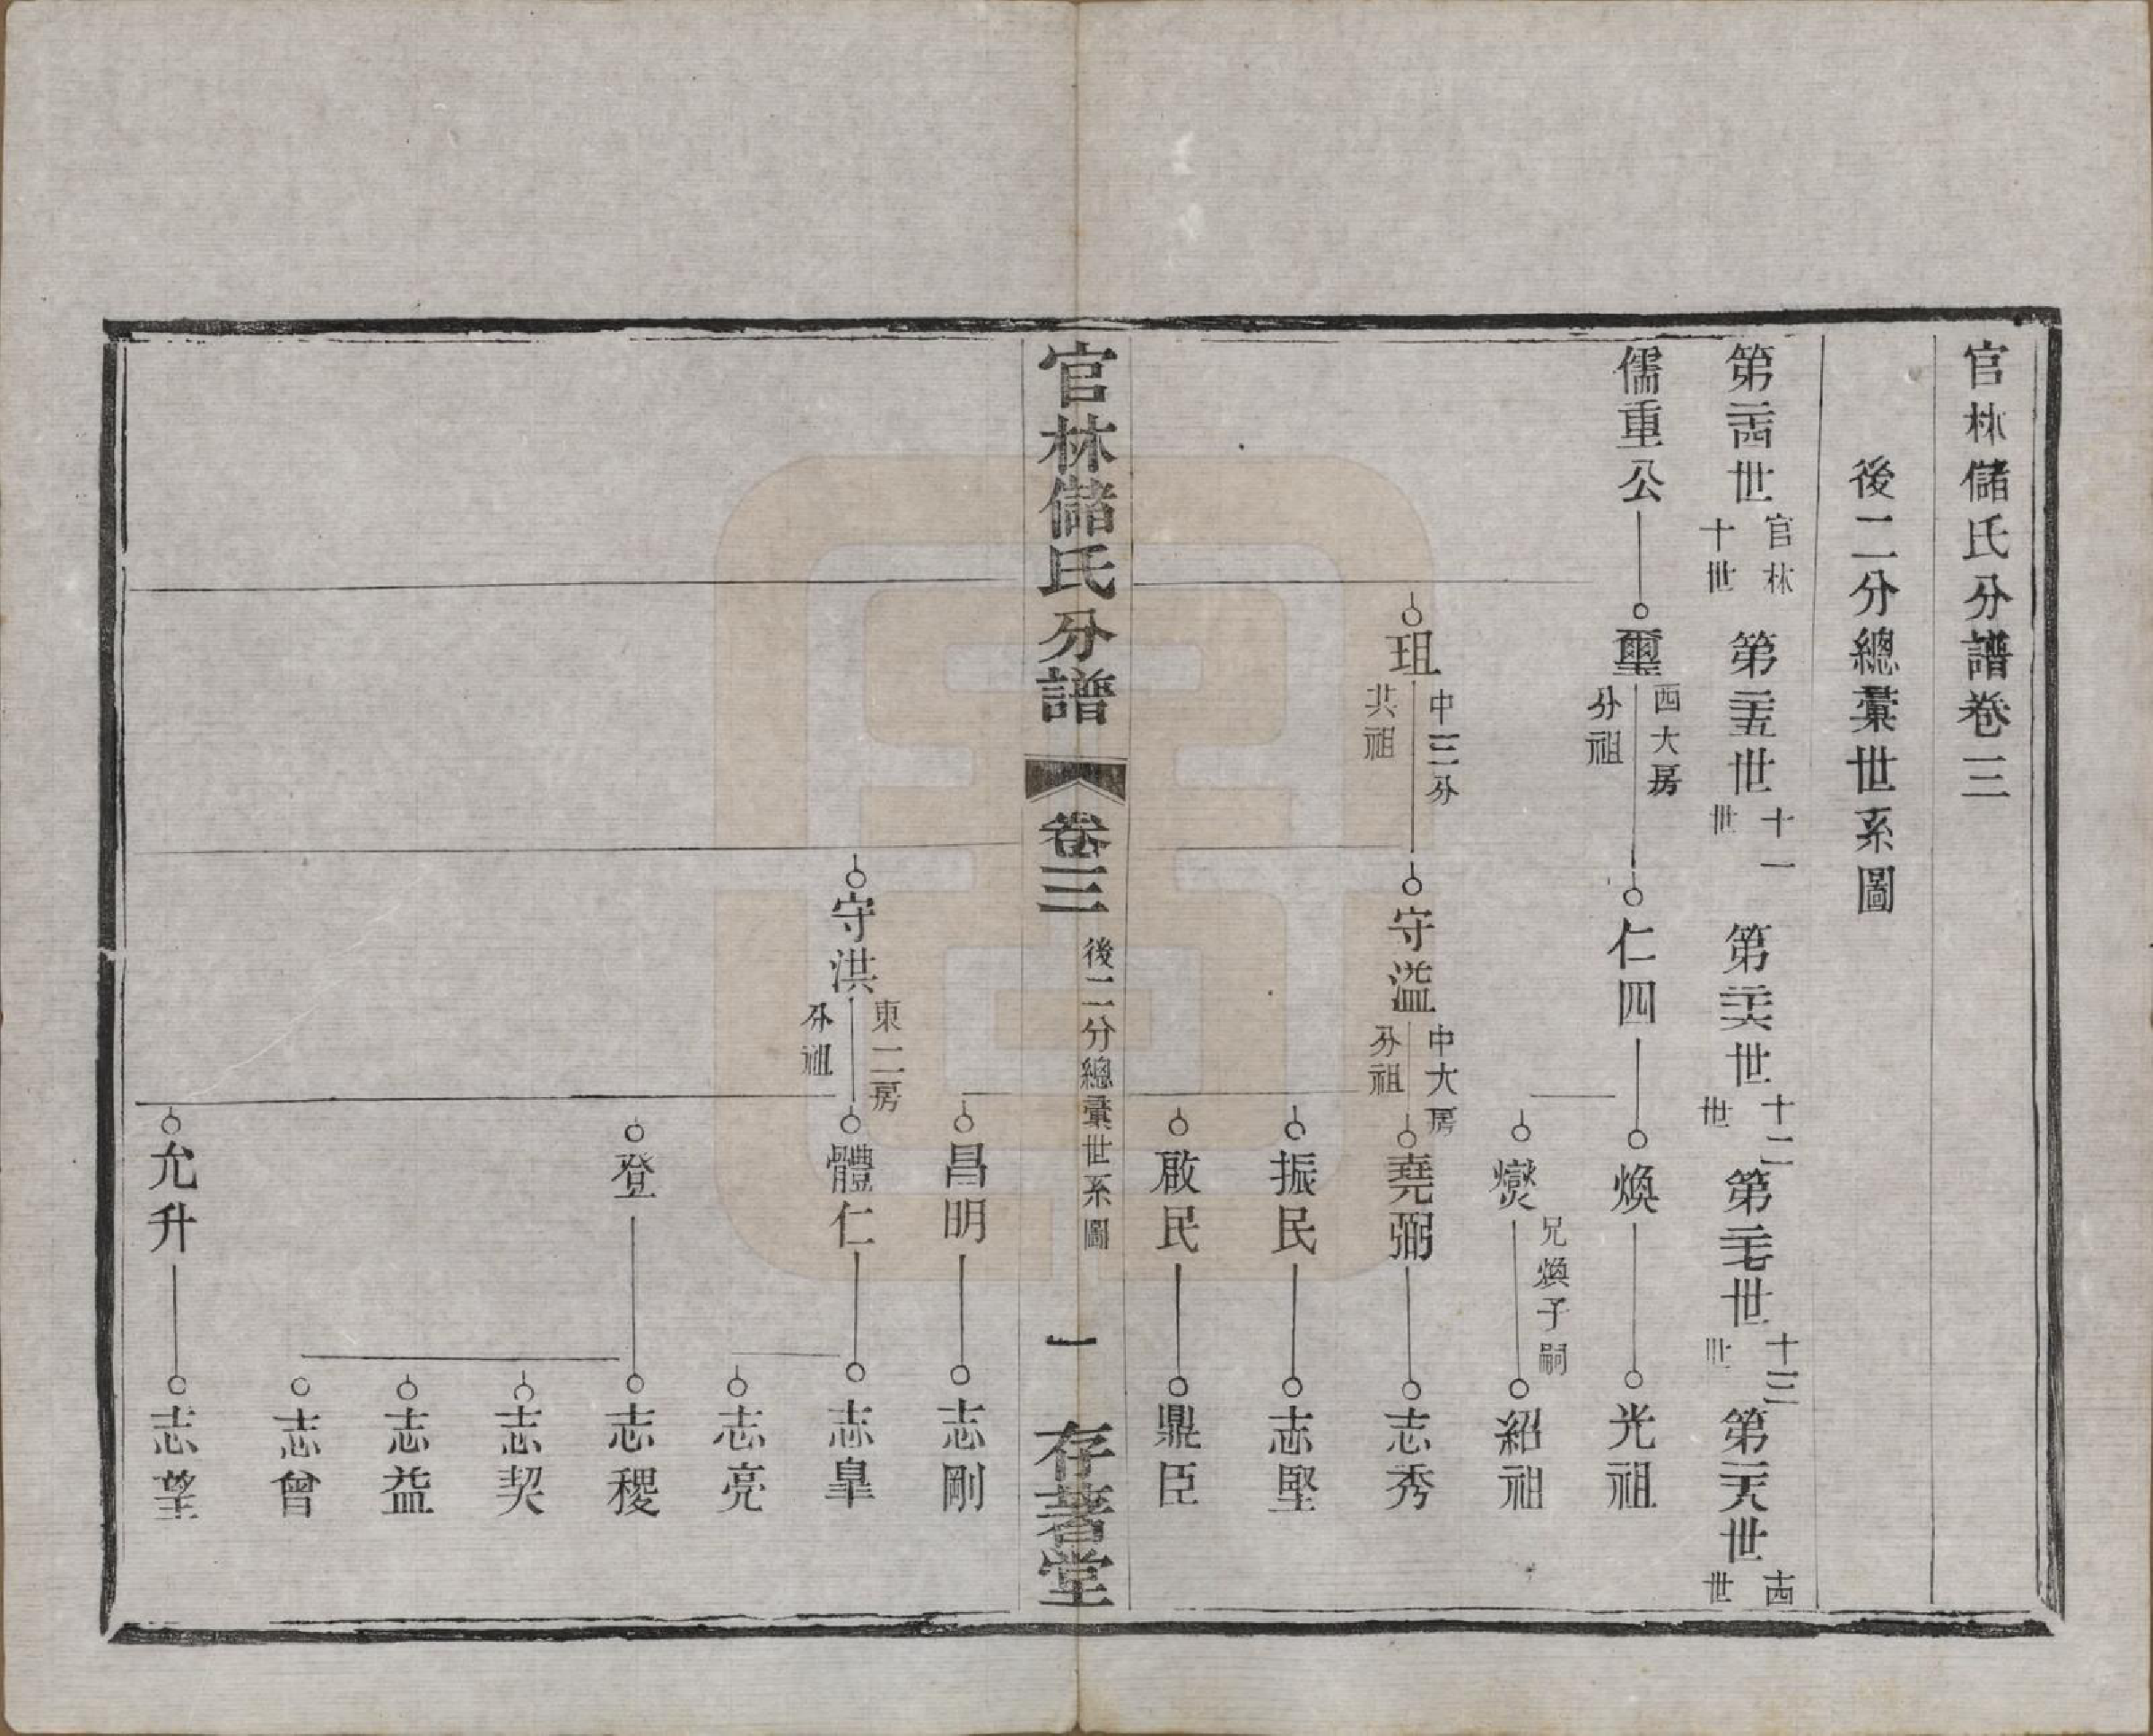 官林儲氏分譜卷三
後二分總彙世系圖
第二十四世 官林十世 第二十五世 十一世 第二十六世 十二世 第二十七世 十三世 第二十八世 十四世
儒重公 璽 西大房分祖 仁四 煥 光祖
燮 兄煥子嗣 紹祖
珇 中三分共祖 守溢 中大房分祖 堯弼 志秀
振民 志堅
啟民 鼎臣
官林儲氏分譜 卷三 後二分總彙世系圖 一 存著堂
昌明 志剛
守洪 東二房分祖 體仁 志皐
志亮
登 志稷
志契
志益
志曾
允升 志望